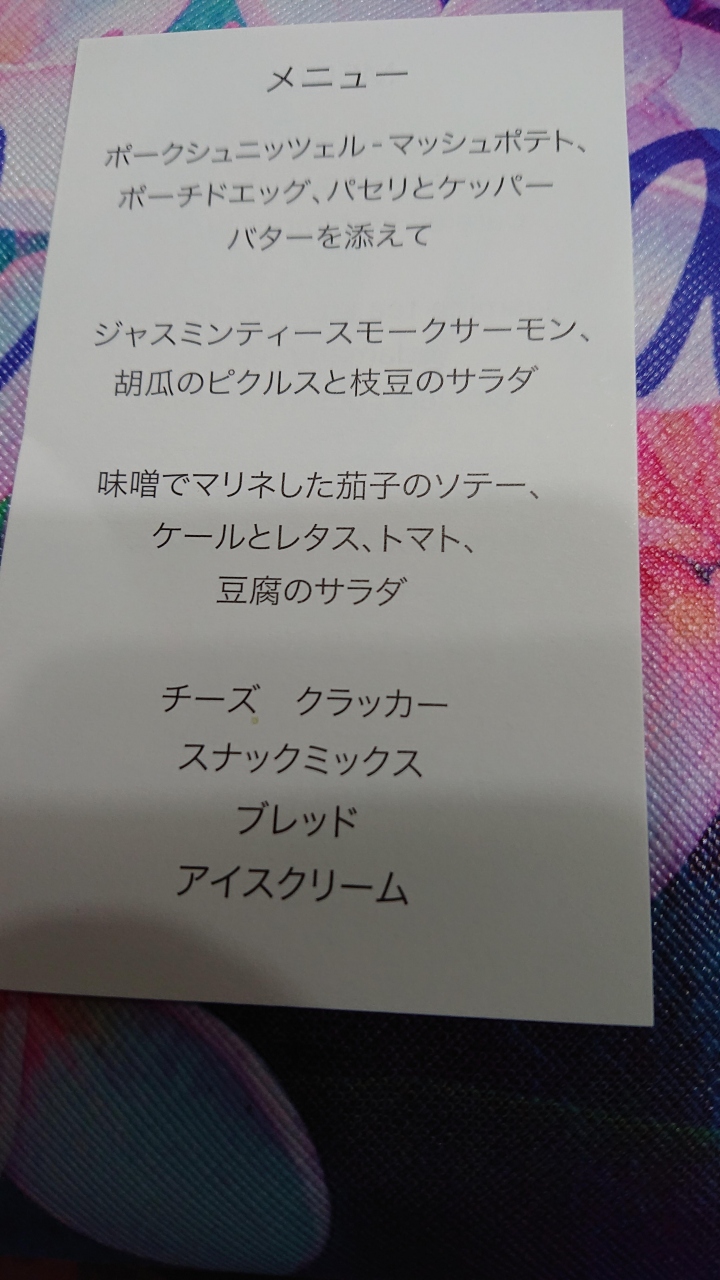 メニュー
ポークシュニッツェル - マッシュポテト、
ポーチドエッグ、パセリとケッパー
バターを添えて
ジャスミンティースモークサーモン、
胡瓜のピクルスと枝豆のサラダ
味噌でマリネした茄子のソテー、
ケールとレタス、トマト、
豆腐のサラダ
チーズ　クラッカー
スナックミックス
ブレッド
アイスクリーム